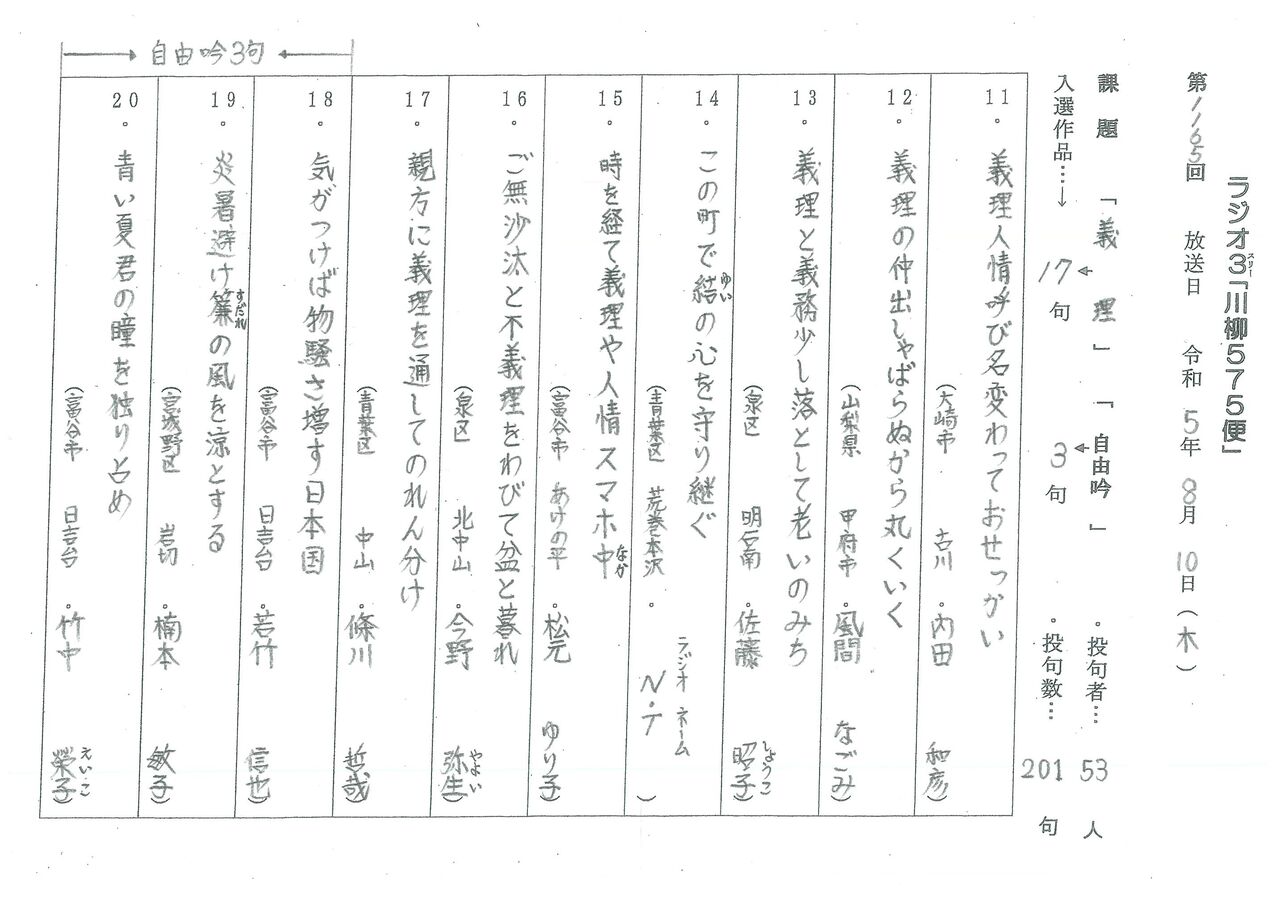 ラジオ3「川柳575便」
スリー
第1165回 放送日 令和5年8月10日(木)
課題 「義理」「自由吟」 ・投句者…53人
入選作品…→17句 3句 ・投句数…201句
11・義理人情呼び名変わっておせっかい
(大崎市 古川・内田 和彦)
12・義理の仲出しゃばらぬから丸くいく
(山梨県 甲府市・風間 なごみ)
13・義理と義務少し落として老いのみち
(泉区 明石南・佐藤 昭子)
しょうこ
14・この町で結の心を守り継ぐ
ゆい
(青葉区 荒巻本沢・ラジオネーム N・T)
15・時を経て義理や人情スマホ中
なか
(富谷市 あけの平・松元 ゆり子)
16・ご無沙汰と不義理をわびて盆と暮れ
(泉区 北中山・今野 弥生)
やよい
17・親方に義理を通してのれん分け
(青葉区 中山・條川 哲哉)
自由吟3句
18・気がつけば物騒さ増す日本国
(富谷市 日吉台・若竹 信也)
19・炎暑避け簾の風を涼とする
すだれ
(宮城野区 岩切・楠本 敏子)
20・青い夏君の瞳を独り占め
(富谷市 日吉台・竹中 榮子)
えいこ